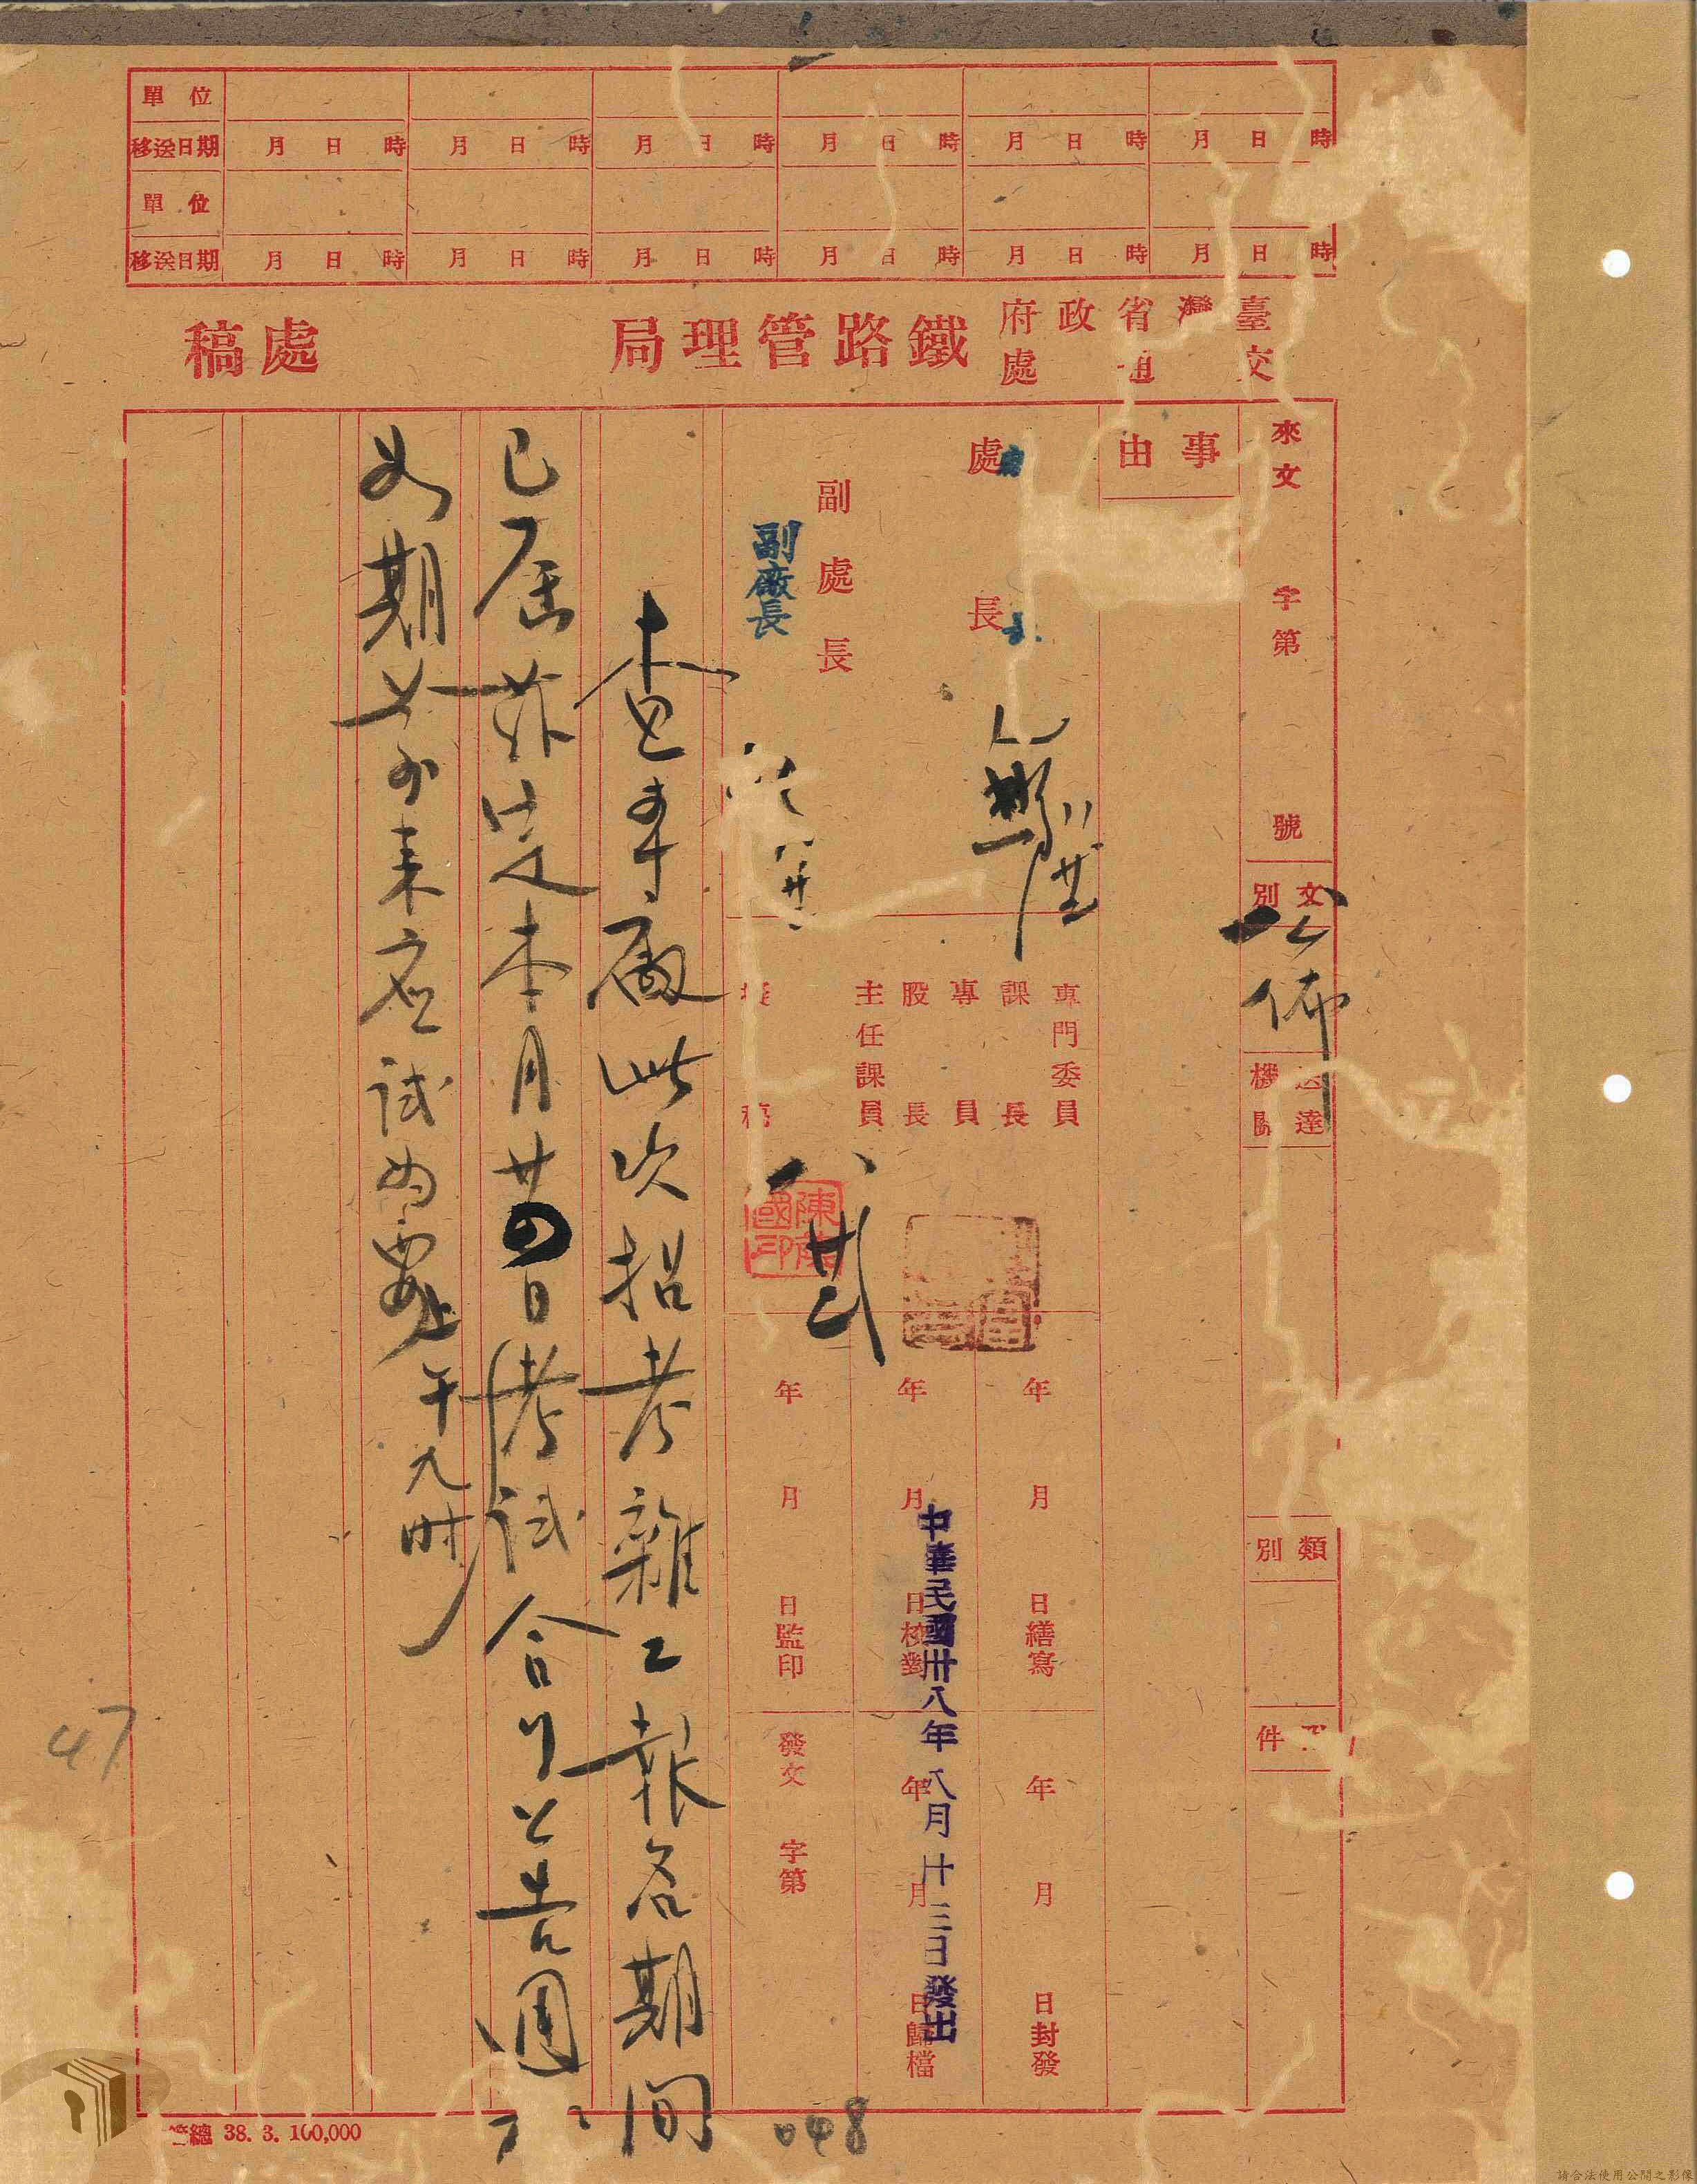 單位
移送日期 月日時 月日時 月日時 月日時 月日時 月日時
單位
移送日期 月日時 月日時 月日時 月日時 月日時 月日時
臺灣省政府
交通處
鐵路管理局
處稿
來文 字第 號
文別
公佈
送達機關
類別
件
事由
處長
副處長
副廠長
專門委員
課長
專員
股長
主任課員
擬稿
八
年 月 日繕寫
年 月 日校對
年 月 日監印
年 月 日封發
年 月 日歸檔
發文 字第
中華民國卅八年八月廿三日發出
查本廠此次招考雜工報名期間
已屆茲定本月廿四日考試合行公告週
如期前來應試為要
上午九時
47
048
管總 38. 3. 100,000
請合法使用公開之影像